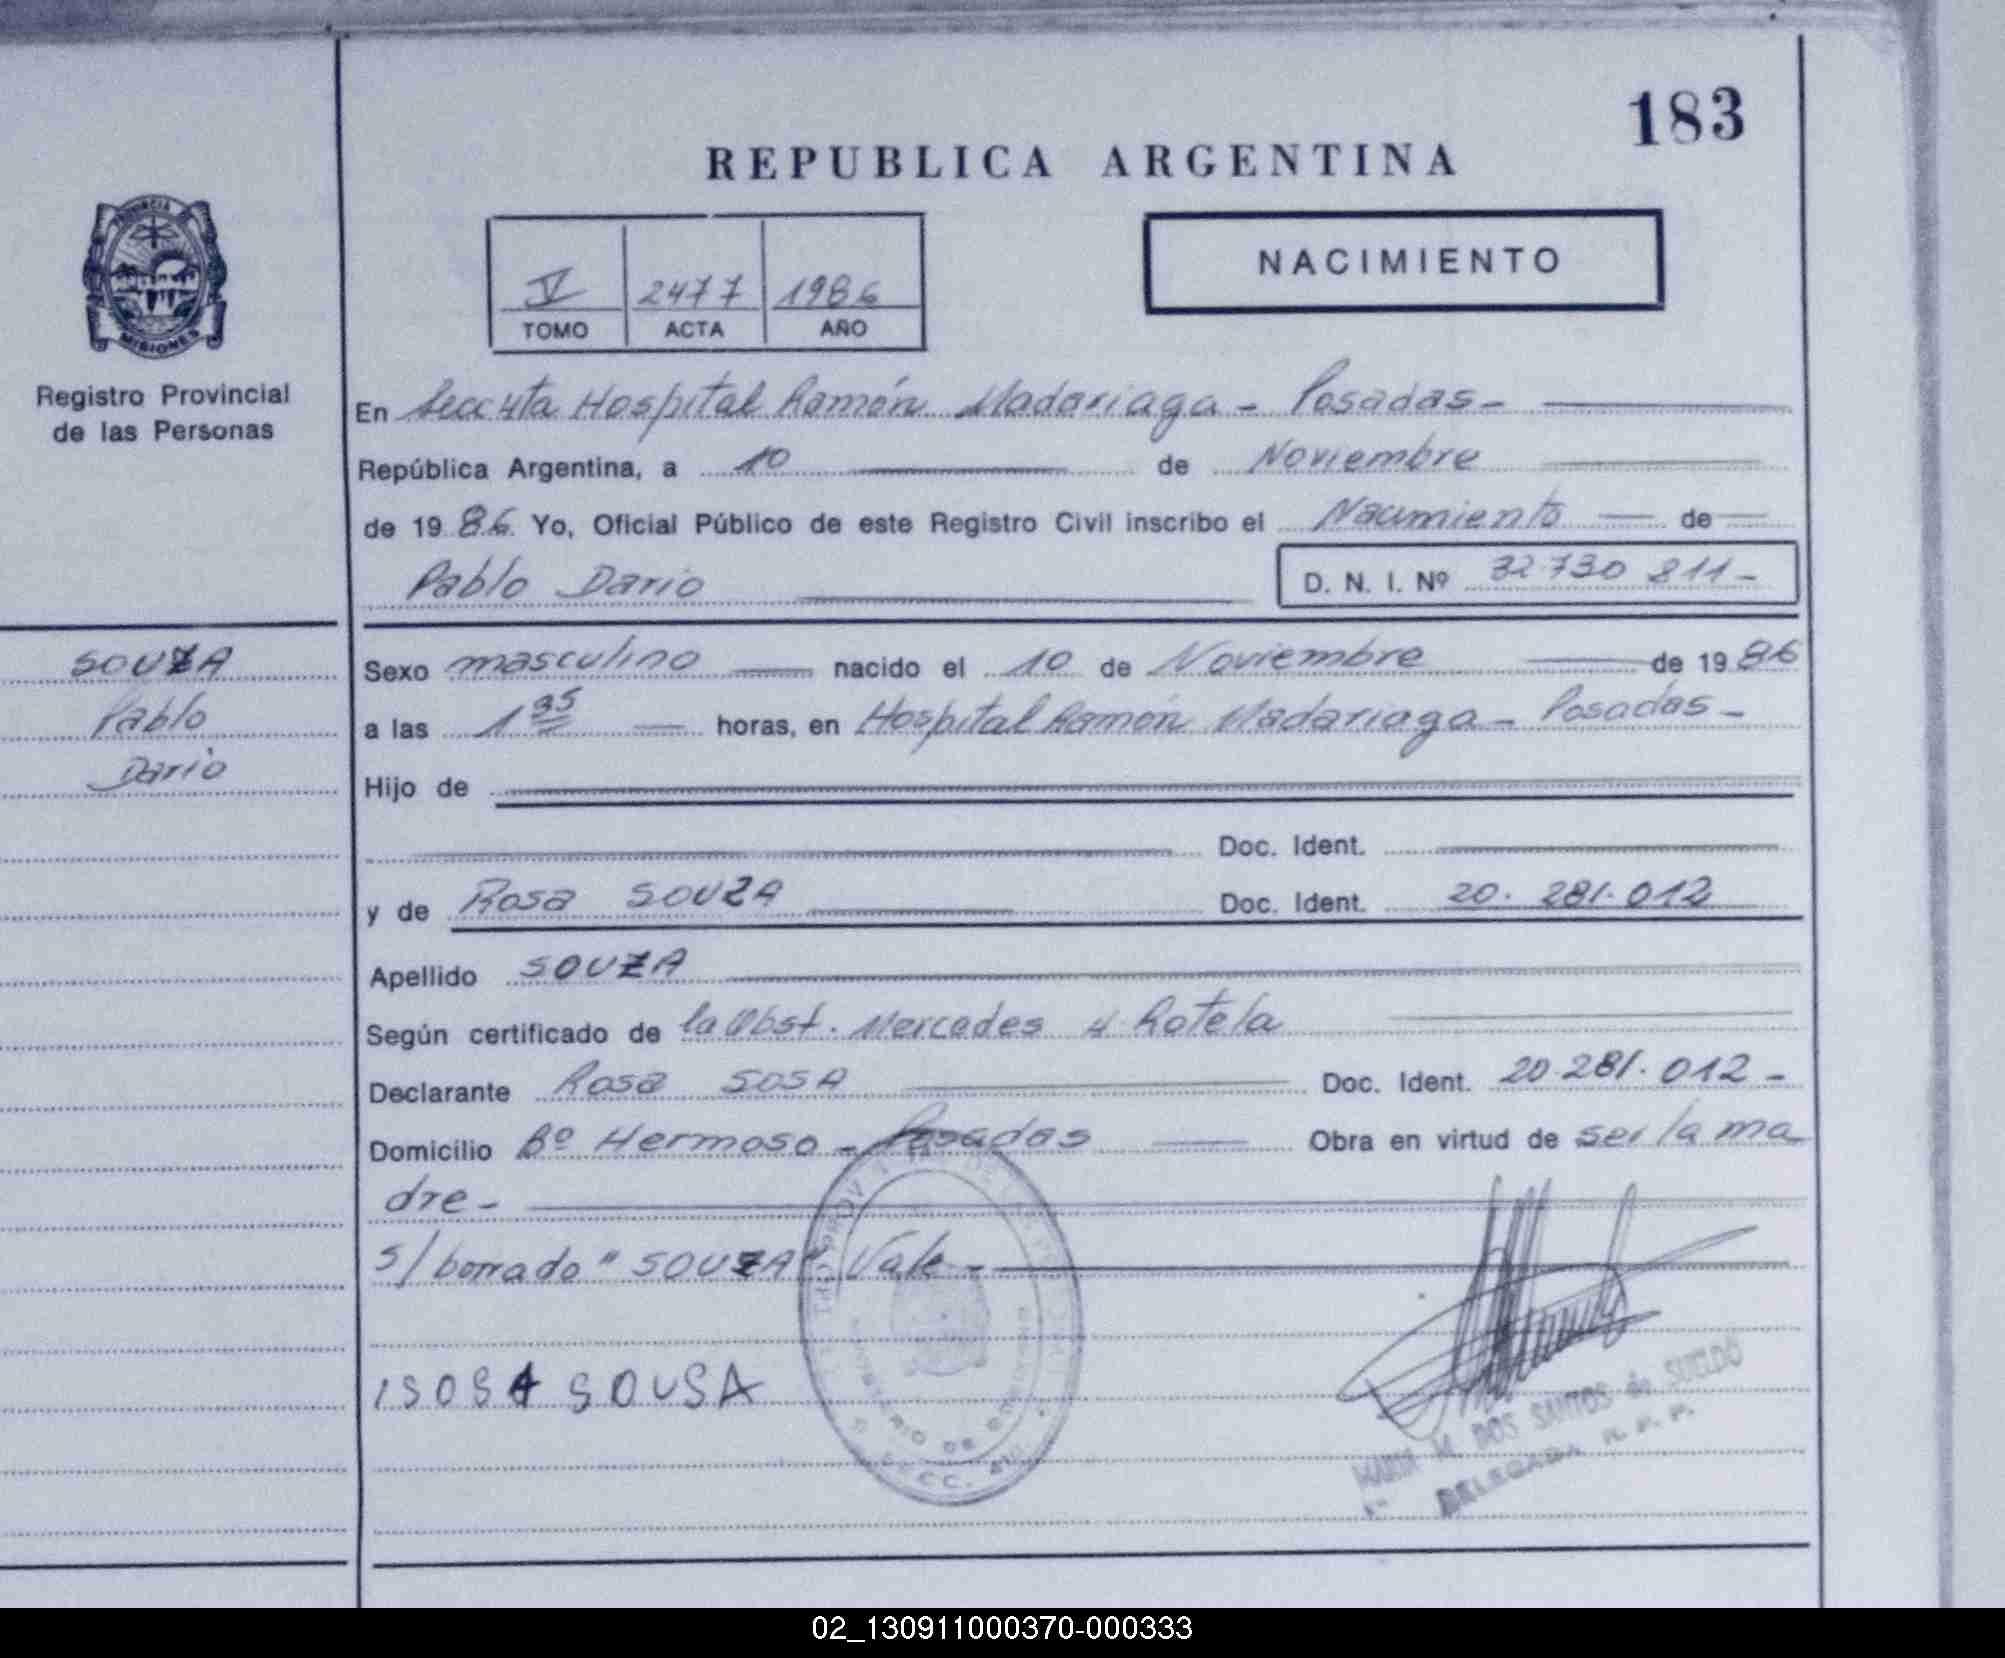 183
REPUBLICA ARGENTINA
PROVINCIA
MISIONES
Registro Provincial
de las Personas
V 2477 1986
TOMO ACTA AÑO
NACIMIENTO
En Secc 4ta Hospital Ramón Madariaga - Posadas -
República Argentina, a 10 de Noviembre
de 1986 Yo, Oficial Público de este Registro Civil inscribo el Nacimiento de
Pablo Dario D. N. I. Nº 32.730 811 -
SOUZA
Pablo
Dario
Sexo masculino nacido el 10 de Noviembre de 1986
a las 1 35 horas, en Hospital Ramón Madariaga - Posadas -
Hijo de
Doc. Ident.
y de Rosa SOUZA Doc. Ident. 20. 281. 012
Apellido SOUZA
Según certificado de la Obst. Mercedes Rotela
Declarante Rosa SOSA Doc. Ident. 20.281. 012 -
Domicilio Bº Hermoso - Posadas Obra en virtud de ser la ma
dre -
s/ borrado "SOUZA" Vale -
SOUSA
MARIA M. DOS SANTOS de SUELDO
DELEGADA R. P. P.
02_130911000370-000333